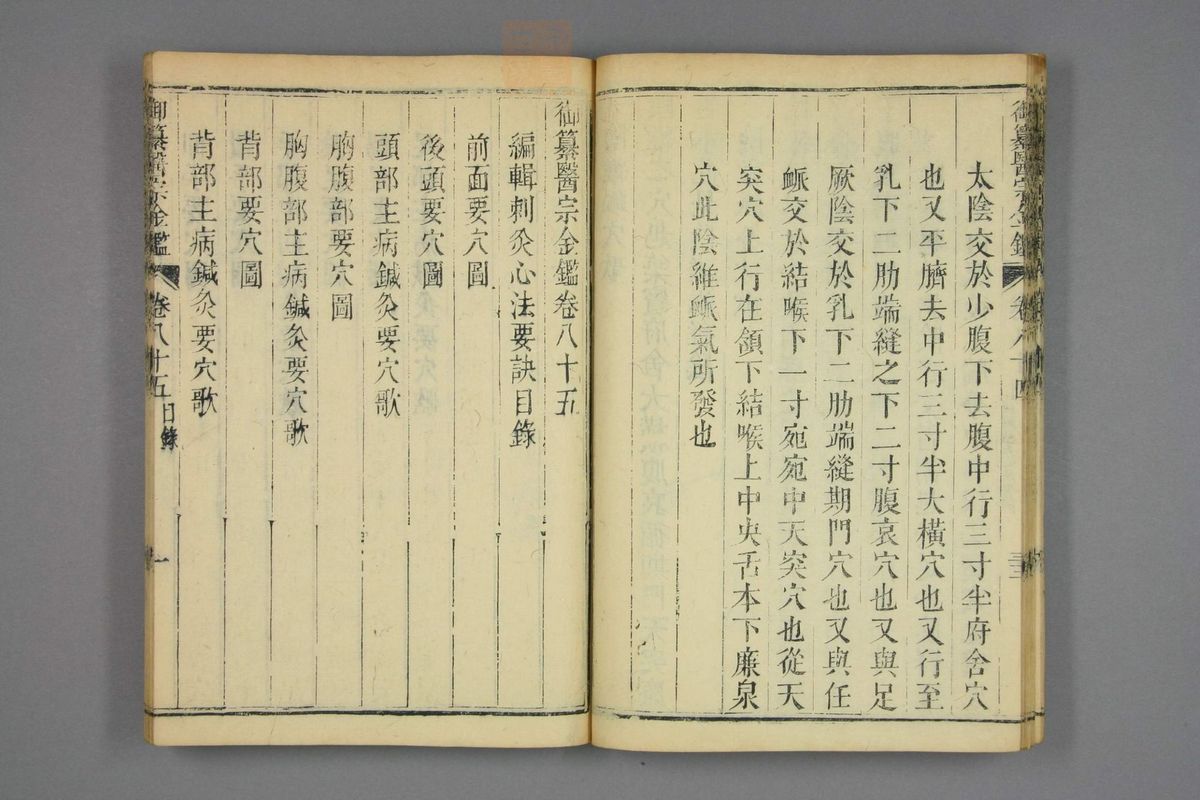 太陰交於少腹下去腹中行三寸半府舍穴
也又平臍去中行三寸半大橫穴也又行至
乳下二肋端縫之下二寸腹哀穴也又與足
厥陰交於乳下二肋端縫期門穴也又與任
脈交於結喉下一寸宛宛中天突穴也從天
突穴上行在頷下結喉上中央舌本下廉泉
穴此陰維脈氣所發也
御纂醫宗金鑑卷八十五
編輯刺灸心法要訣目錄
前面要穴圖
後頭要穴圖
頭部主病鍼灸要穴歌
胸腹部要穴圖
胸腹部主病鍼灸要穴歌
背部要穴圖
背部主病鍼灸要穴歌
御纂醫宗金鑑
卷八十五
目錄
一